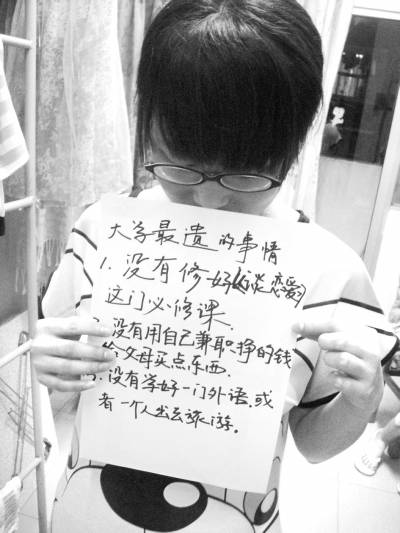 大学最遗的事情
1. 没有修好《谈恋爱》
这门必修课.
2. 没有用自己兼职挣的钱
给父母买点东西.
3. 没有学好一门外语.或
者一个人出去旅游。